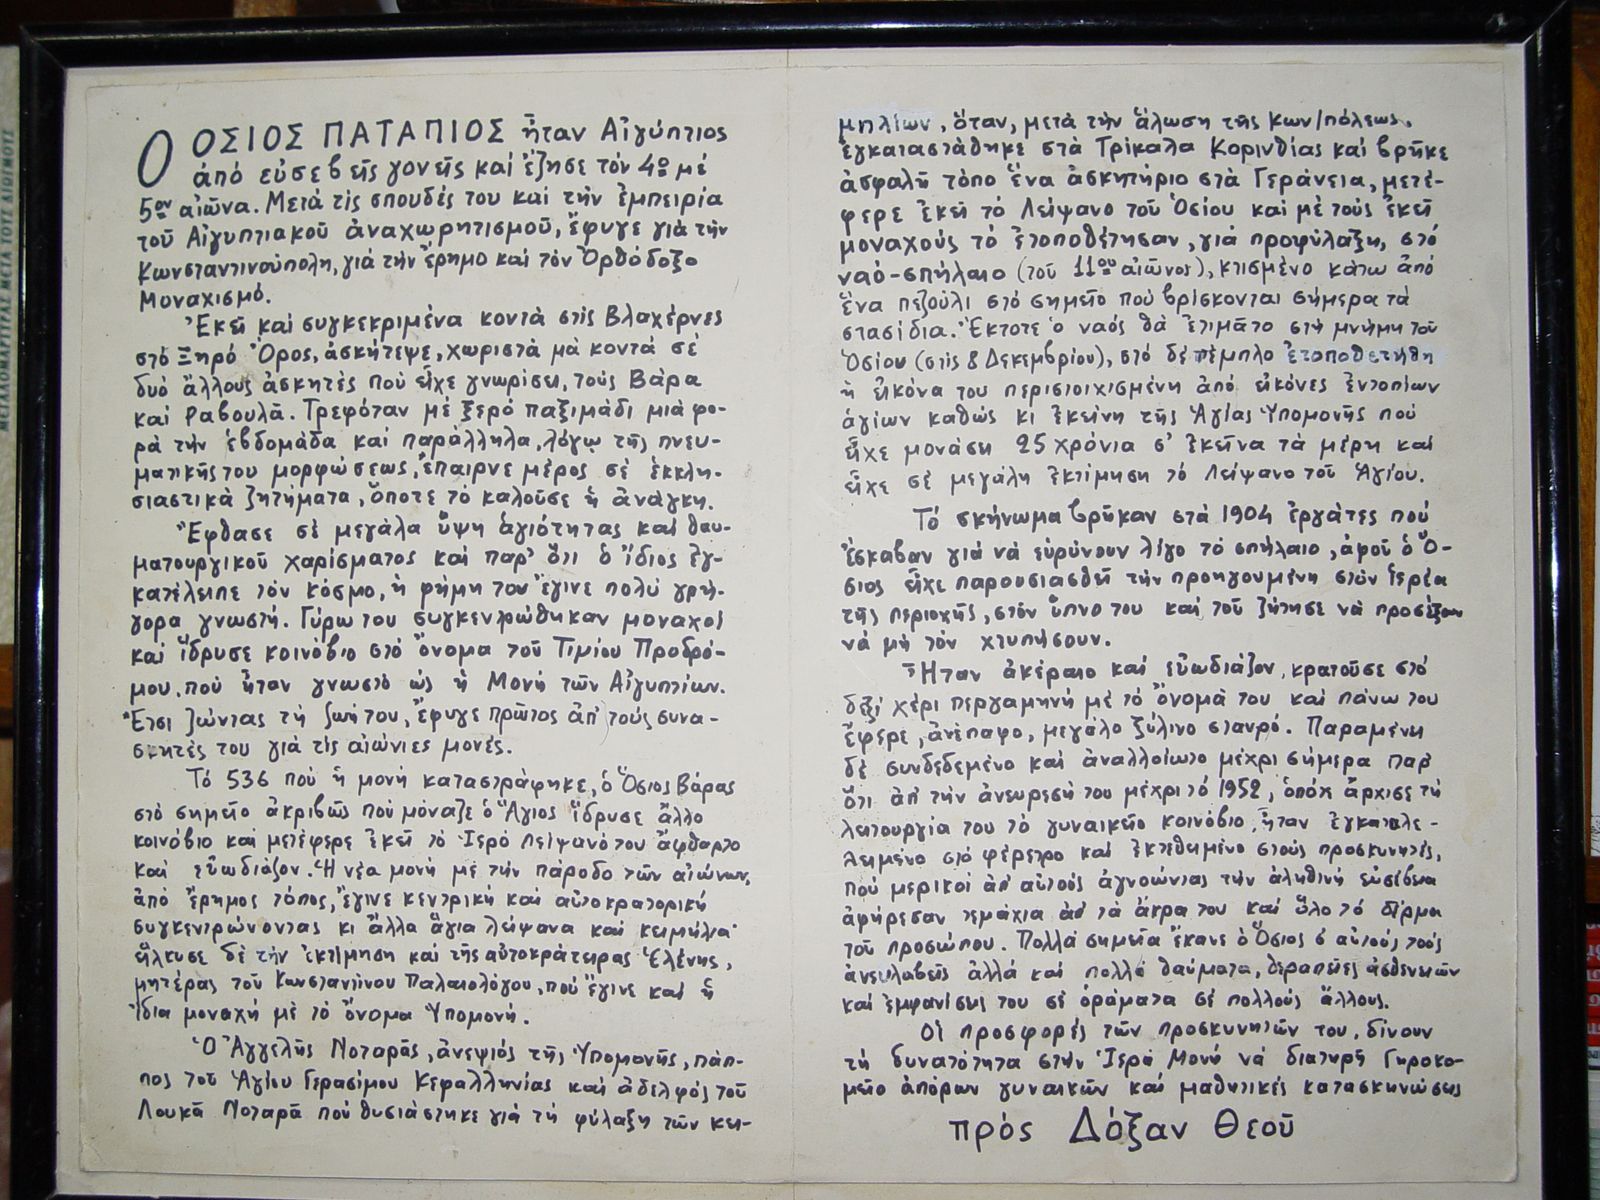 ΜΕΓΑΛΟΜΑΡΤΥΡΑΣ ΜΕΤΑ ΤΟΥΣ ΔΙΩΓΜΟΥΣ
Ο ΟΣΙΟΣ ΠΑΤΑΠΙΟΣ ἦταν Αἰγύπτιος
ἀπό εὐσεβεῖς γονεῖς καί ἔζησε τόν 4ο μέ
5ον αἰῶνα. Μετά τίς σπουδές του καί τήν ἐμπειρία
τοῦ Αἰγυπτιακοῦ ἀναχωρητισμοῦ, ἔφυγε γιά τήν
Κωνσταντινούπολη, γιά τήν ἔρημο καί τόν Ὀρθόδοξο
Μοναχισμό.
Ἐκεῖ καί συγκεκριμένα κοντά στίς Βλαχέρνες
στό Ξηρό Ὄρος, ἀσκήτεψε, χωριστά μά κοντά σέ
δυό ἄλλους ἀσκητές πού εἶχε γνωρίσει, τούς Βάρα
καί Ραβουλᾶ. Τρεφόταν μέ ξερό παξιμάδι μιά φο-
ρά τήν ἑβδομάδα καί παράλληλα, λόγῳ τῆς πνευ-
ματικῆς του μορφώσεως, ἔπαιρνε μέρος σέ ἐκκλη-
σιαστικά ζητήματα, ὅποτε τό καλοῦσε ἡ ἀνάγκη.
Ἔφθασε σέ μεγάλα ὕψη ἁγιότητας καί θαυ-
ματουργικοῦ χαρίσματος καί παρ' ὅτι ὁ ἴδιος ἐγ-
κατέλειπε τόν κόσμο, ἡ φήμη του ἔγινε πολύ γρή-
γορα γνωστή. Γύρω του συγκεντρώθηκαν μοναχοί
καί ἵδρυσε κοινόβιο στό ὄνομα τοῦ Τιμίου Προδρό-
μου, πού ἦταν γνωστό ὡς ἡ Μονή τῶν Αἰγυπτίων.
Ἔτσι ζώντας τή ζωή του, ἔφυγε πρῶτος ἀπ' τούς συνα-
σκητές του γιά τίς αἰώνιες μονές.
Τό 536 πού ἡ μονή καταστράφηκε, ὁ Ὅσιος Βάρας
στό σημεῖο ἀκριβῶς πού μόναζε ὁ Ἅγιος ἵδρυσε ἄλλο
κοινόβιο καί μετέφερε ἐκεῖ τό Ἱερό Λείψανό του ἄφθαρτο
καί εὐωδιάζον. Ἡ νέα μονή μέ τήν πάροδο τῶν αἰώνων,
ἀπό ἔρημος τόπος, ἔγινε κεντρική καί αὐτοκρατορική
συγκεντρώνοντας κι ἄλλα ἅγια λείψανα καί κειμήλια·
εἵλκυσε δέ τήν ἐκτίμηση καί τῆς αὐτοκράτειρας Ἑλένης,
μητέρας τοῦ Κωνσταντίνου Παλαιολόγου, πού ἔγινε καί ἡ
ἴδια μοναχή μέ τό ὄνομα Ὑπομονή.
Ὁ Ἀγγελῆς Νοταρᾶς, ἀνεψιός τῆς Ὑπομονῆς, πάπ-
πος τοῦ Ἁγίου Γερασίμου Κεφαλληνίας καί ἀδελφός τοῦ
Λουκᾶ Νοταρᾶ πού θυσιάστηκε γιά τή φύλαξη τῶν κει-
μηλίων, ὅταν, μετά τήν ἅλωση τῆς Κων/πόλεως,
ἐγκαταστάθηκε στά Τρίκαλα Κορινθίας καί βρῆκε
ἀσφαλῆ τόπο ἕνα ἀσκητήριο στά Γεράνεια, μετέ-
φερε ἐκεῖ τό Λείψανο τοῦ Ὁσίου καί μέ τούς ἐκεῖ
μοναχούς τό ἐτοποθέτησαν, γιά προφύλαξη, στό
ναό-σπήλαιο (τοῦ 11ου αἰῶνος), κτισμένο κάτω ἀπό
ἕνα πεζούλι στό σημεῖο πού βρίσκονται σήμερα τά
στασίδια. Ἔκτοτε ὁ ναός θά ἐτιμᾶτο στή μνήμη τοῦ
Ὁσίου (στίς 8 Δεκεμβρίου), στό δέ τέμπλο ἐτοποθετήθη
ἡ εἰκόνα του περιστοιχισμένη ἀπό εἰκόνες ἐντοπίων
ἁγίων καθώς κι ἐκείνη τῆς Ἁγίας Ὑπομονῆς πού
εἶχε μονάσει 25 χρόνια σ' ἐκεῖνα τά μέρη καί
εἶχε σέ μεγάλη ἐκτίμηση τό Λείψανο τοῦ Ἁγίου.
Τό σκήνωμα βρῆκαν στά 1904 ἐργάτες πού
ἔσκαβαν γιά νά εὐρύνουν λίγο τό σπήλαιο, ἀφοῦ ὁ Ὅ-
σιος εἶχε παρουσιασθεῖ τήν προηγουμένη στόν Ἱερέα
τῆς περιοχῆς, στόν ὕπνο του καί τοῦ ζήτησε νά προσέξουν
νά μή τόν χτυπήσουν.
Ἦταν ἀκέραιο καί εὐωδιάζον, κρατοῦσε στό
δεξί χέρι περγαμηνή μέ τό ὄνομά του καί πάνω του
ἔφερε, ἀνέπαφο, μεγάλο ξύλινο σταυρό. Παραμένει
δέ συνδεδεμένο καί ἀναλλοίωτο μέχρι σήμερα παρ'
ὅτι ἀπ' τήν ἀνεύρεσή του μέχρι τό 1952, ὁπότε ἄρχισε τή
λειτουργία του τό γυναικεῖο κοινόβιο, ἦταν ἐγκαταλε-
λειμένο στό φέρετρο καί ἐκτεθειμένο στούς προσκυνητές,
πού μερικοί ἀπ' αὐτούς ἀγνοώντας τήν ἀληθινή εὐσέβεια
ἀφήρεσαν τεμάχια ἀπ' τά ἄκρα του καί ὅλο τό δέρμα
τοῦ προσώπου. Πολλά σημεῖα ἔκανε ὁ Ὅσιος σ' αὐτούς τούς
ἀνευλαβεῖς ἀλλά καί πολλά θαύματα, θεραπεῖες ἀσθενειῶν
καί ἐμφανίσεις του σέ ὁράματα σέ πολλούς ἄλλους.
Οἱ προσφορές τῶν προσκυνητῶν του, δίνουν
τή δυνατότητα στήν Ἱερά Μονή νά διατηρῆ Γηροκο-
μεῖο ἀπόρων γυναικῶν καί μαθητικές κατασκηνώσεις
πρός Δόξαν Θεοῦ